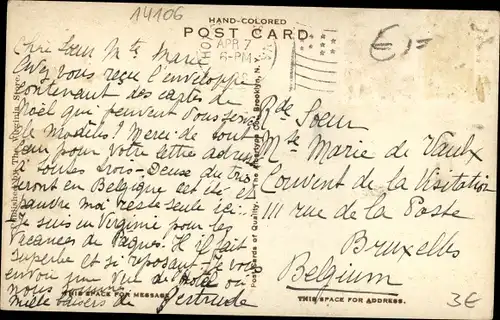 14106
HAND-COLORED
POST CARD
APR 7
6-PM
E/=
Chère Soeur Mte Marie
Avez vous reçu l'enveloppe
contenant des cartes de
Noël qui peuvent vous servir
de Modèles? Merci de tout
coeur pour votre lettre
toutes trois
iront en Belgique cet été et
pauvre moi reste seule ici..
Je suis en Virginie pour les
Vacances de Pâques. Il fait
superbe et si reposant. Je vous
envoie une vue de
nous
Mille baisers de Gertrude
THIS SPACE FOR MESSAGE
Post Cards of Quality. — The Albertype Co., Brooklyn, N. Y.
Rde Soeur
Mte Marie de Vaulx
Couvent de la Visitation
111 rue de la Poste
Bruxelles
Belgium
THIS SPACE FOR ADDRESS.
3E